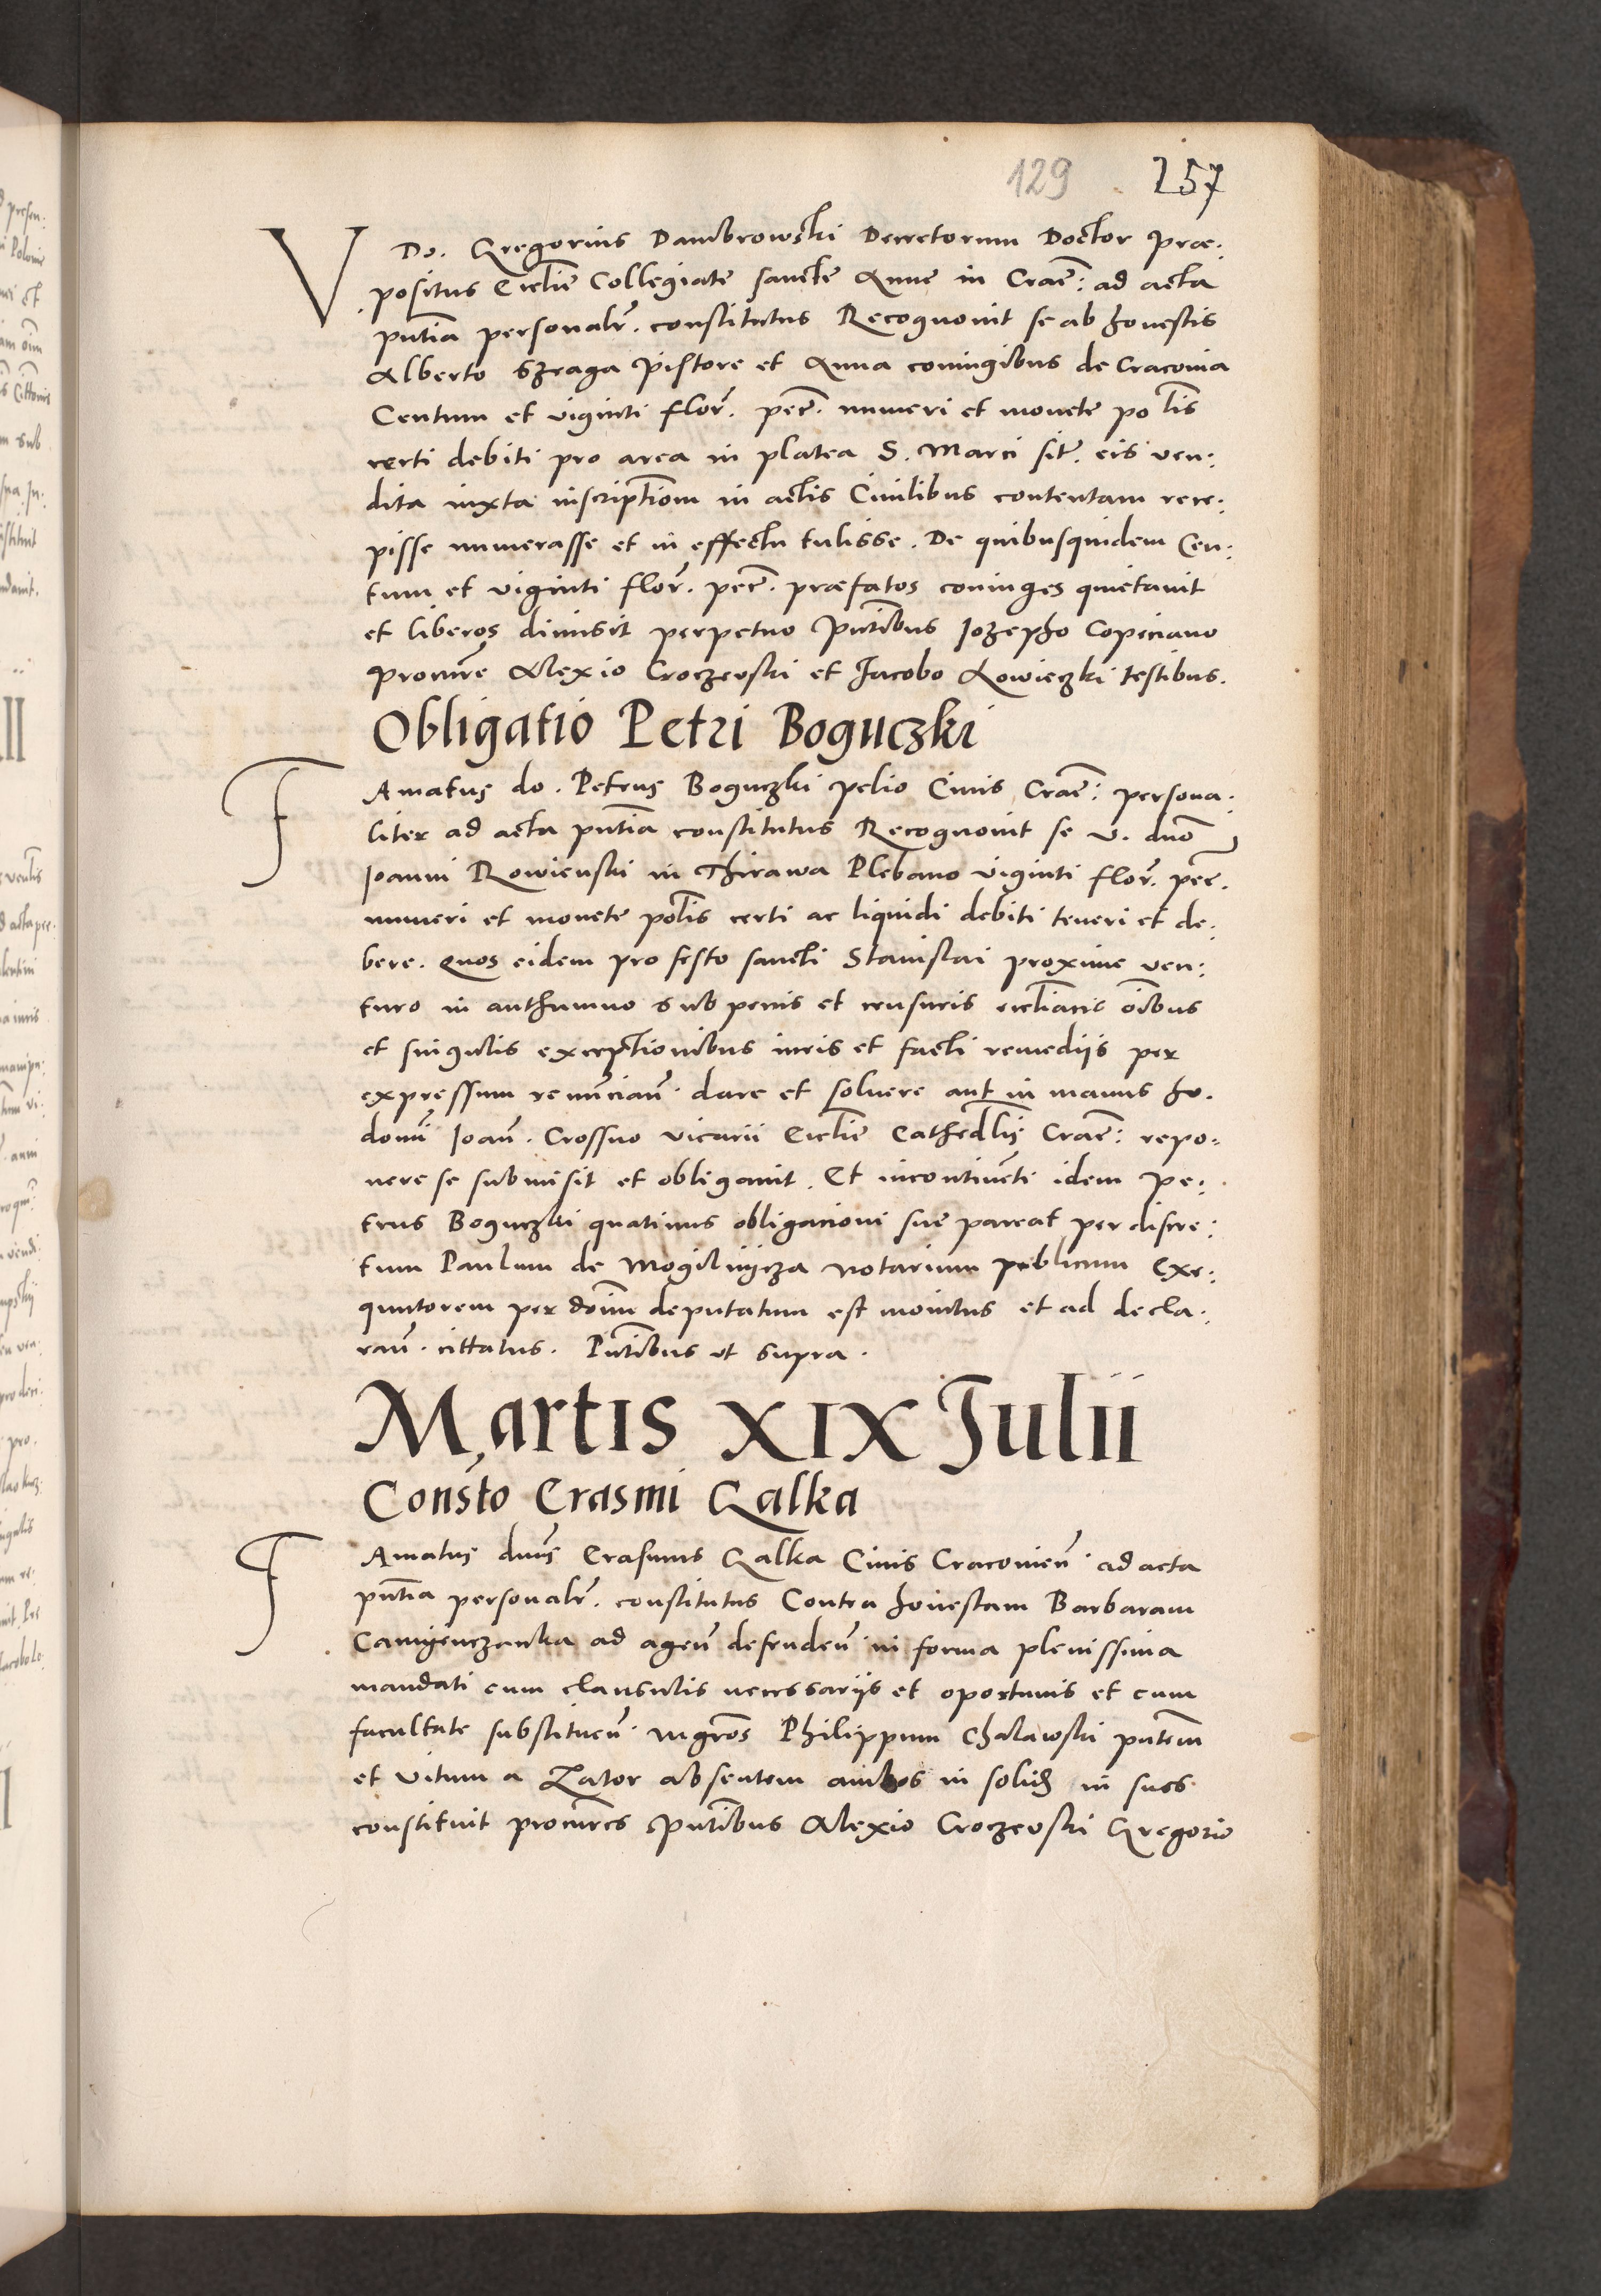 129 257
V Do. Gregorius Dambrowski Decretorum Doctor præ:
positus Eccliē Collegiate sancte Anne in Crac̄: ad acta
pn̄tia personalr̄. constitutus Recognovit se ab honestis
Alberto Szraga pistore et Anna coniugibus de Cracovia
Centum et viginti flor̄. pec̄. numeri et monete polis
certi debiti pro area in platea S. Marci sit̄. eis ven:
dita iuxta inscriptiom̄ in actis Civilibus contentam rece:
pisse numerasse et in effectu tulisse. De quibusquidem Cen:
tum et viginti flor̄. pec̄. præfatos coniuges quietavit
et liberos dimisit perpetuo Pn̄tibus Iozepho Copeciano
procur̄re Alexio Croczewski et Jacobo Lowieczki testibus.
Obligatio Petri Boguczki
FAmatus do. Petrus Boguczki pelio Civis Crac̄: persona:
liter ad acta pn̄tia constitutus Recognovit se v. dn̄o
Joanni Rowienski in Thirawa Plebano viginti flor̄. pec̄.
numeri et monete polis certi ac liquidi debiti teneri et de:
bere. Quos eidem pro festo sancti Stanislai proxime ven:
turo in authumno sub penis et censuris eccliacis oībus
et singulis exceptionibus iuris et facti remediis per
expressum renuncian̄. dare et solvere aut in manus ho.
domī Joan̄. Crossno vicarii Eccliē Cathedlis Crac̄: repo:
nere se submisit et obligavit. Et incontinēti idem Pe:
trus Boguczki quatinus obligacioni sue pareat per discre:
tum Paulum de Mogilnycza Notarium publicum Exe:
quutorem per doīm deputatum est monitus et ad decla:
ran̄. cittatus. Pn̄tibus ut supra.
Martis XIX Julii
Consto Erasmi Galka
FAmatus dn̄s Erasmus Galka Civis Cracovien̄. ad acta
pn̄tia personalr̄. constitutus Contra honestam Barbaram
Camyenczanka ad agen̄ defenden̄ in forma plenissima
mandati cum clausulis necessariis et oportunis et cum
facultate substituen̄. mgros Philippum Chalawski pn̄tem
et Vitum a Zator absentem ambos in solid in suos
constituit procur̄res Pn̄tibus Alexio Croczewski Gregorio